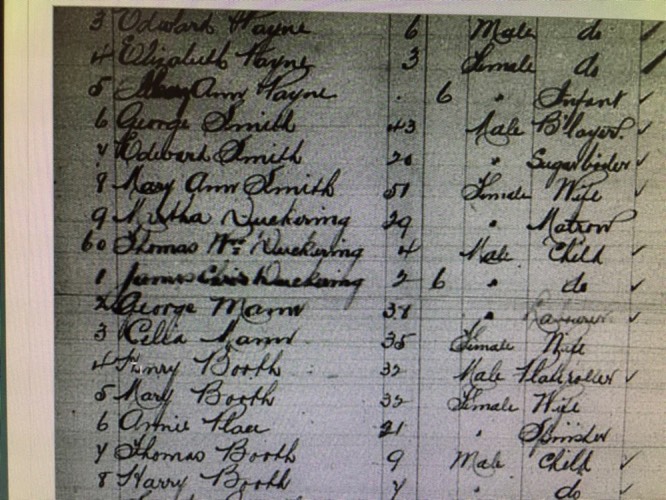 3 Edward Hayne 6 Male do ✓
4 Elizabeth Hayne 3 Female do ✓
5 Mary Ann Hayne . 6 " Infant ✓
6 George Smith 43 Male B'layer. ✓
7 Edward Smith 20 " ✓
8 Mary Ann Smith 51 Female Wife ✓
9 Duckering 29 " Matron
60 Thomas Wm Duckering 4 Male Child ✓
1 James Duckering 2 6 " do ✓
2 George Mann 38 " Labourer ✓
3 Celia Mann 35 Female Wife
4 Henry Booth 32 Male ✓
5 Mary Booth 32 Female Wife
6 Annie 21 " Spinster
7 Thomas Booth 9 Male Child ✓
8 Harry Booth 7 " do ✓